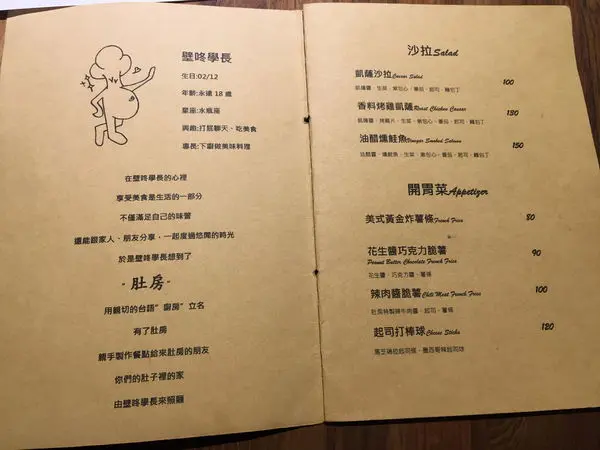 壁咚學長
生日:02/12
年齡:永遠 18 歲
星座:水瓶座
興趣:打屁聊天、吃美食
專長:下廚做美味料理
在壁咚學長的心裡
享受美食是生活的一部分
不僅滿足自己的味蕾
還能跟家人、朋友分享，一起度過悠閒的時光
於是壁咚學長想到了
-肚房-
用親切的台語”廚房”立名
有了肚房
親手製作餐點給來肚房的朋友
你們的肚子裡的家
由壁咚學長來照顧
沙拉Salad
凱薩沙拉Caesar Salad 100
凱薩醬、生菜、紫包心、番茄、起司、麵包丁
香料烤雞凱薩Roast Chicken Caesar 130
凱薩醬、烤雞片、生菜、紫包心、番茄、起司、麵包丁
油醋燻鮭魚Vinegar Smoked Salmon 150
油醋醬、燻鮭魚、生菜、紫包心、番茄、起司、麵包丁
開胃菜Appetizer
美式黃金炸薯條French Fries 80
花生醬巧克力脆薯 90
Peanut Butter Chocolate French Fries
花生醬、巧克力醬、薯條
辣肉醬脆薯Chili Meat French Fries 100
肚房特製辣牛肉醬、起司、薯條
起司打棒球Cheese Sticks 120
馬芝瑞拉起司條、墨西哥辣起司球